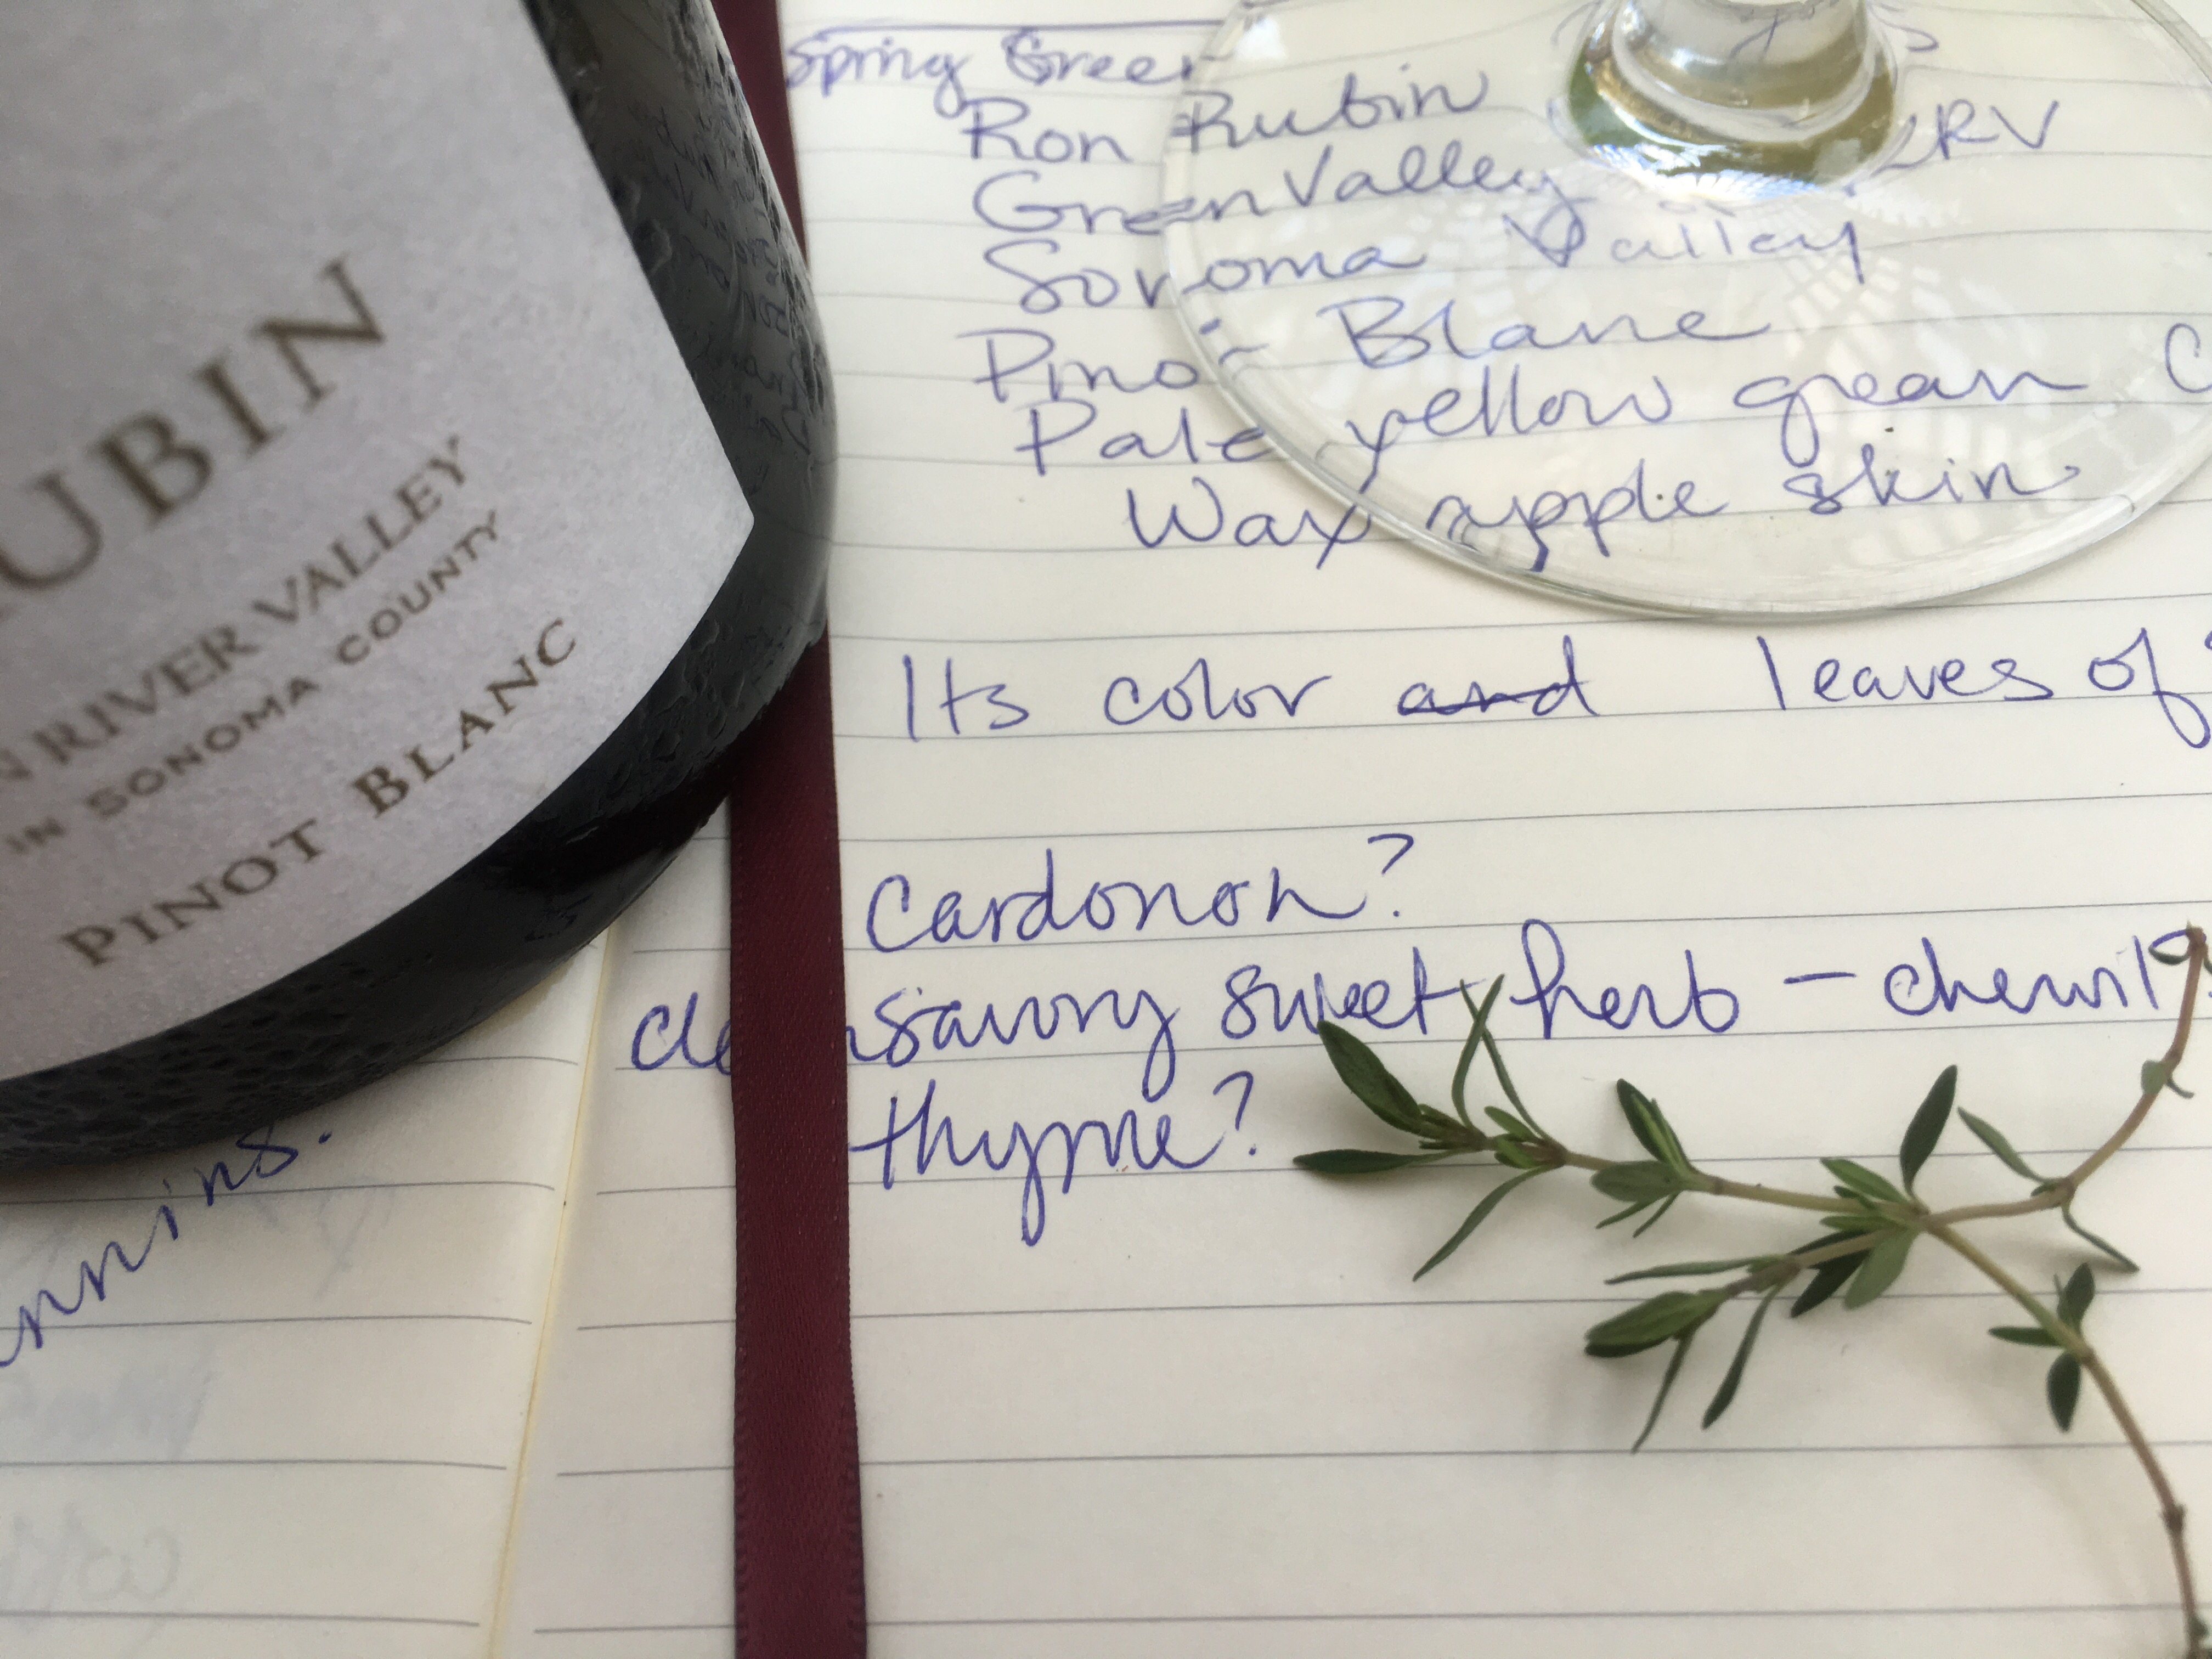 UBIN
N RIVER VALLEY
IN SONOMA COUNTY
PINOT BLANC
Spring Green
Ron Rubin
Green Valley RRV
Sonoma Valley
Pinot Blanc
Pale yellow green C
Wax apple skin
Its color and leaves of
Cardonon?
savory sweet herb - chervil?
thyme?
nnins.